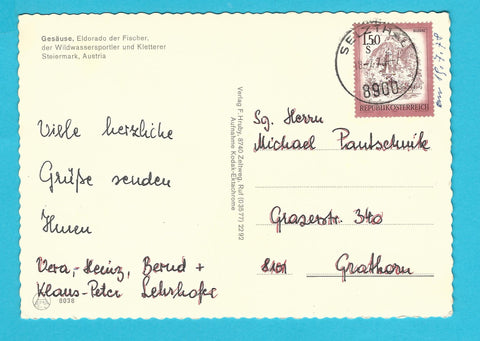 Gesäuse, Eldorado der Fischer,
der Wildwassersportler und Kletterer
Steiermark, Austria
Viele herzliche
Grüße senden
Ihnen
Vera, Heinz, Bernd +
Klaus-Peter Lehrhofer
0038
Verlag F. Hruby, 8740 Zeltweg, Ruf (03577) 2292
Aufnahme Kodak-Ektachrome
SELZTHAL
8900
1.50
S
REPUBLIK ÖSTERREICH
Sg. Herrn
Michael Pantschnik
Grazerstr. 340
8101 Gratkorn